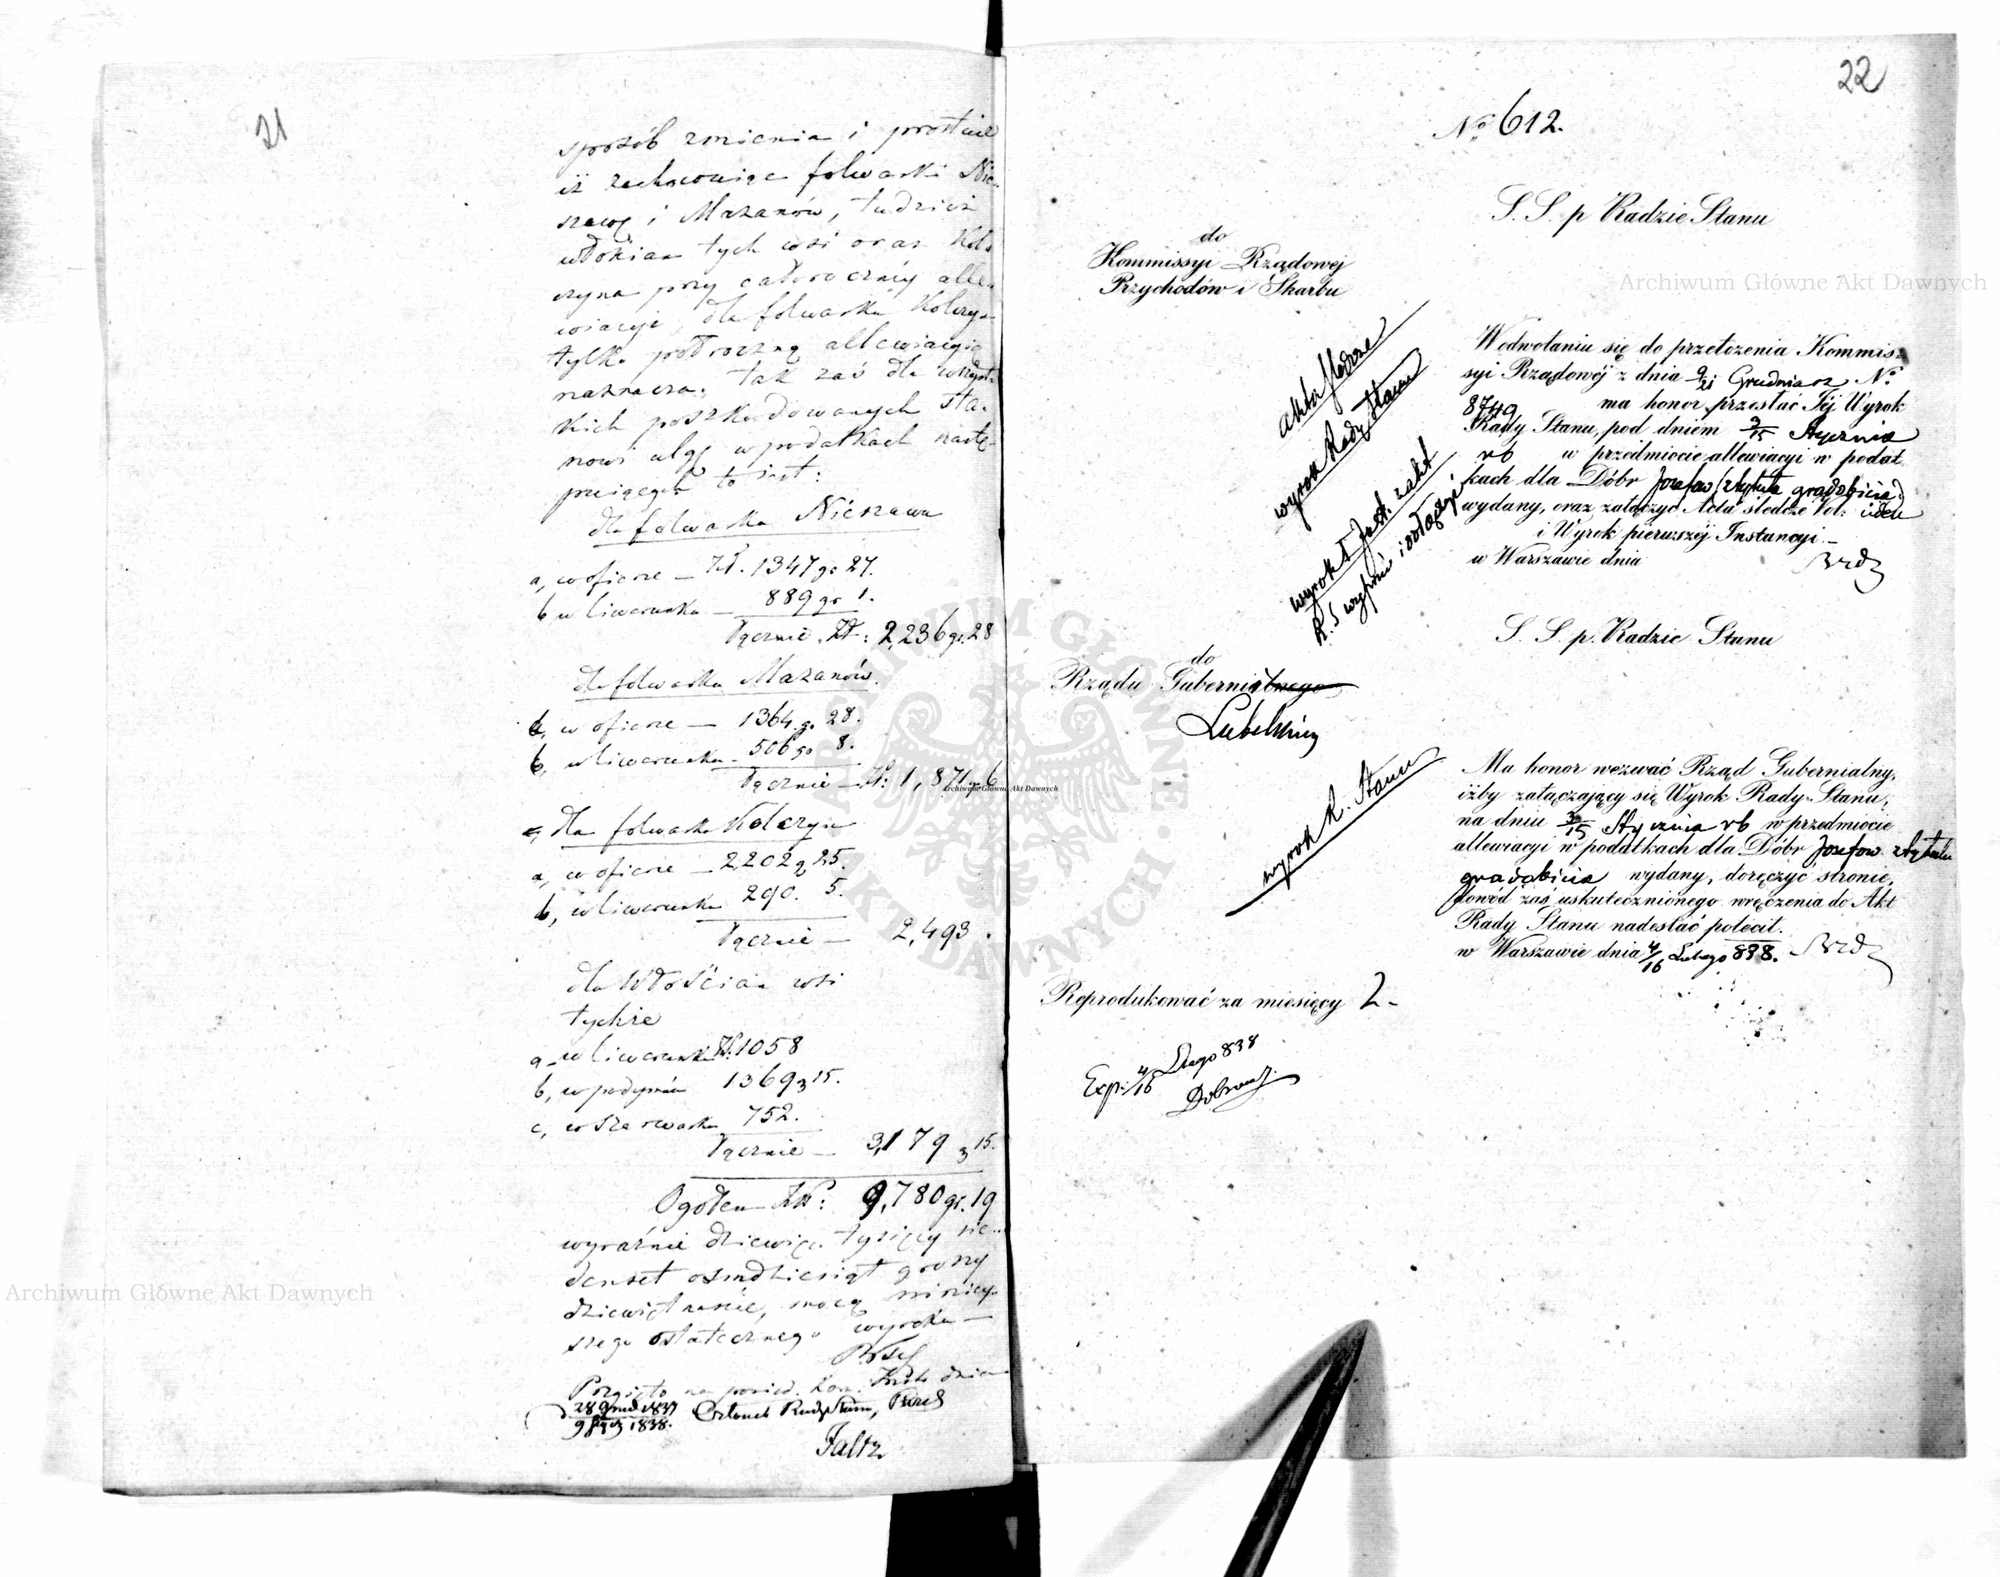 21
sposób zmienia i
iż zachowując folwarki Nie-
szawę i Mazanów, tudzież
włościan tych wsi oraz Kol-
czyna przy całoroczniey alle-
wiacyi, dla folwarku Kolczyn
tylko półroczną allewiacyią
naznacza. Tak zaś dla wszyst-
kich poszkodowanych sta-
nowi ulgę w podatkach nastę-
puiących to iest:
dla folwarku Nieszawa
a, w ofierze — Zł. 1347 gr 27.
b w liwerunku — 889 gr 1.
Łącznie Zł: 2,236 gr. 28
dla folwarku Mazanów.
a, w ofierze — 1364 g. 28.
b, w liwerunku 506 8.
Łącznie — Zł: 1,871 gr 6
dla folwarku Kolczyn
a, w ofierze — 2202 g 25.
b, w liwerunku 290. 5.
Łącznie — 2,493.
dla Włościan wsi
tychże
a w liwerunku Zł. 1058
b, w podymném 1369 15.
c, w szarwarku 752.
Łącznie — 3,179 15.
Ogółem Złp: 9,780 gr. 19
wyraźnie dziewięć tysięcy sie-
demset osmdziesiąt groszy
dziewiętnaście, mocą niniey-
szego ostatecznego wyroku —
Przyięto na posied. Kom. dnia
28 Grud 1837
9 1838. Członek Rady Stanu,
Faltz
22
No. 612.
S. S. p Radzie Stanu
do
Kommissyi Rządowej
Przychodów i Skarbu
akta śledcze
wyrok Rady Stanu
wyrok I Inst. z akt
R. S wyjąć i odłączyć
W odwołaniu się do przełożenia Kommis-
syi Rządowéj z dnia 9/21 Grudnia No.
8749 ma honor przesłać Jéj Wyrok
Rady Stanu, pod dniem 3/15 Stycznia
rb w przedmiocie allewiacyi w podat
kach dla Dóbr Józefów z tytułu gradobicia
wydany, oraz załączyć Acta śledcze Vol:
i Wyrok pierwszéj Instancyi. —
w Warszawie dnia
S. S. p. Radzie Stanu
do
Rządu Gubernialnego
Lubelskiey
wyrok R. Stanu
Ma honor wezwać Rząd Gubernialny,
iżby załączający się Wyrok Rady Stanu,
na dniu 3/15 Stycznia rb w przedmiocie
allewiacyi w podatkach dla Dóbr Józefow z tytułu
gradobicia wydany, doręczyć stronie,
dowód zaś uskutecznionego wręczenia do Akt
Rady Stanu nadesłać polecił.
w Warszawie dnia 4/16 Lutego 838.
Reprodukować za miesięcy 2 —
Exp: 4/16 Lutego 838
Archiwum Główne Akt Dawnych
Archiwum Główne Akt Dawnych
Archiwum Główne Akt Dawnych
ARCHIWUM GŁÓWNE AKT DAWNYCH